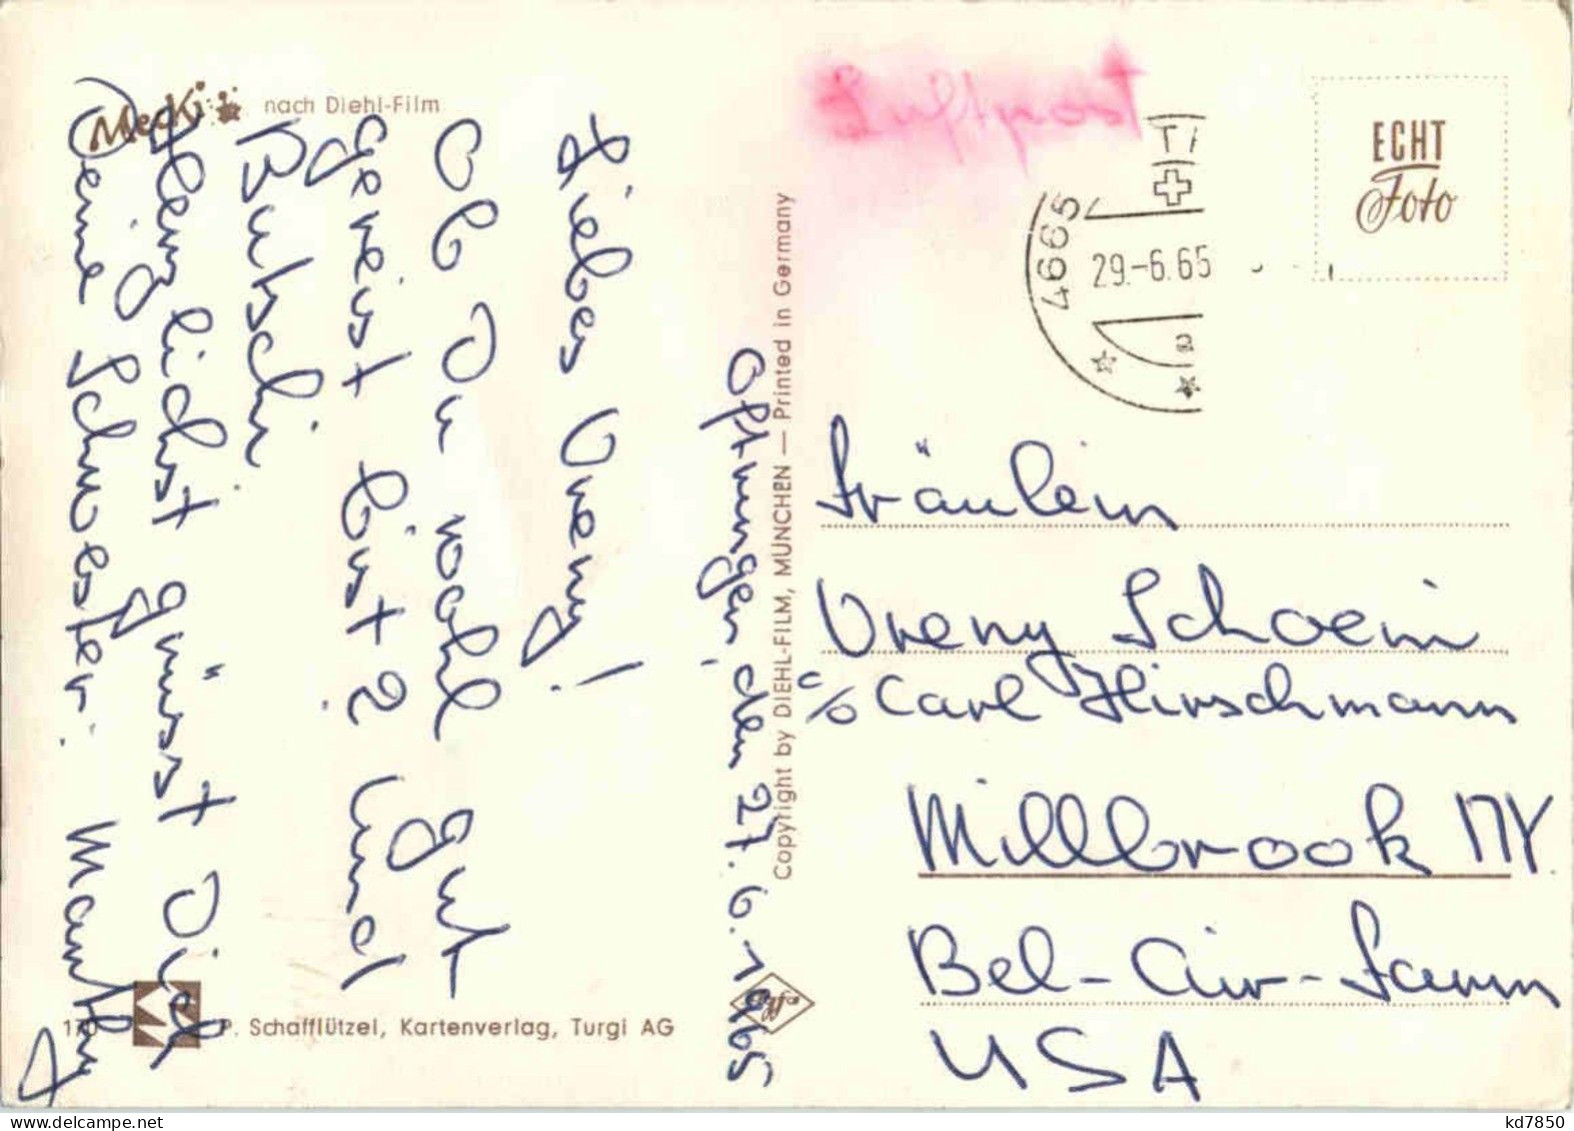 Mecki nach Diehl-Film
Oftringen, den 27.6.1965
Liebes Vreny!
Ob Du wohl gut
gereist bist? Und
Butschi.
Herzlichst grüsst Dich
Deine Schwester: Manthy
Copyright by DIEHL-FILM, MÜNCHEN — Printed in Germany
Luftpost
4665
29.-6.65
a
ECHT
Foto
Fräulein
Vreny Schoeni
c/o Carl Hirschmann
Millbrook NY.
Bel-Air-Farm
USA
Agfa
170
P. Schafflützel, Kartenverlag, Turgi AG
kd7850